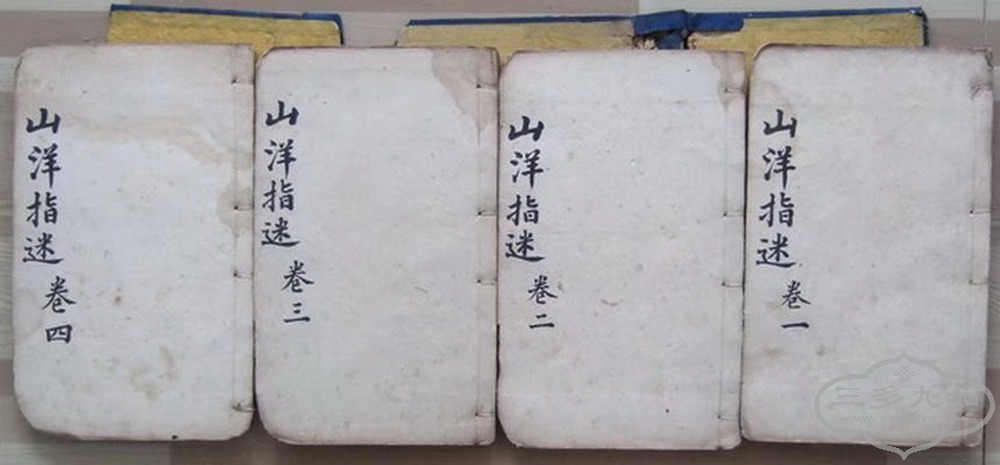 山洋指迷 卷一
山洋指迷 卷二
山洋指迷 卷三
山洋指迷 卷四